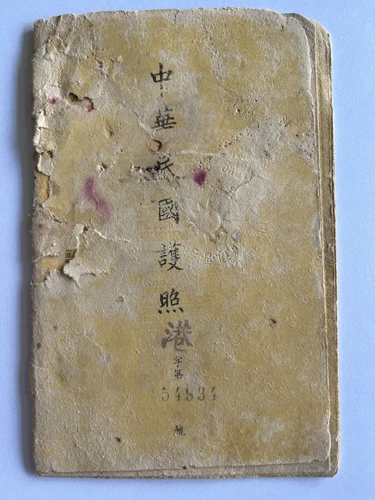 中華民國護照
港字第
54834
號